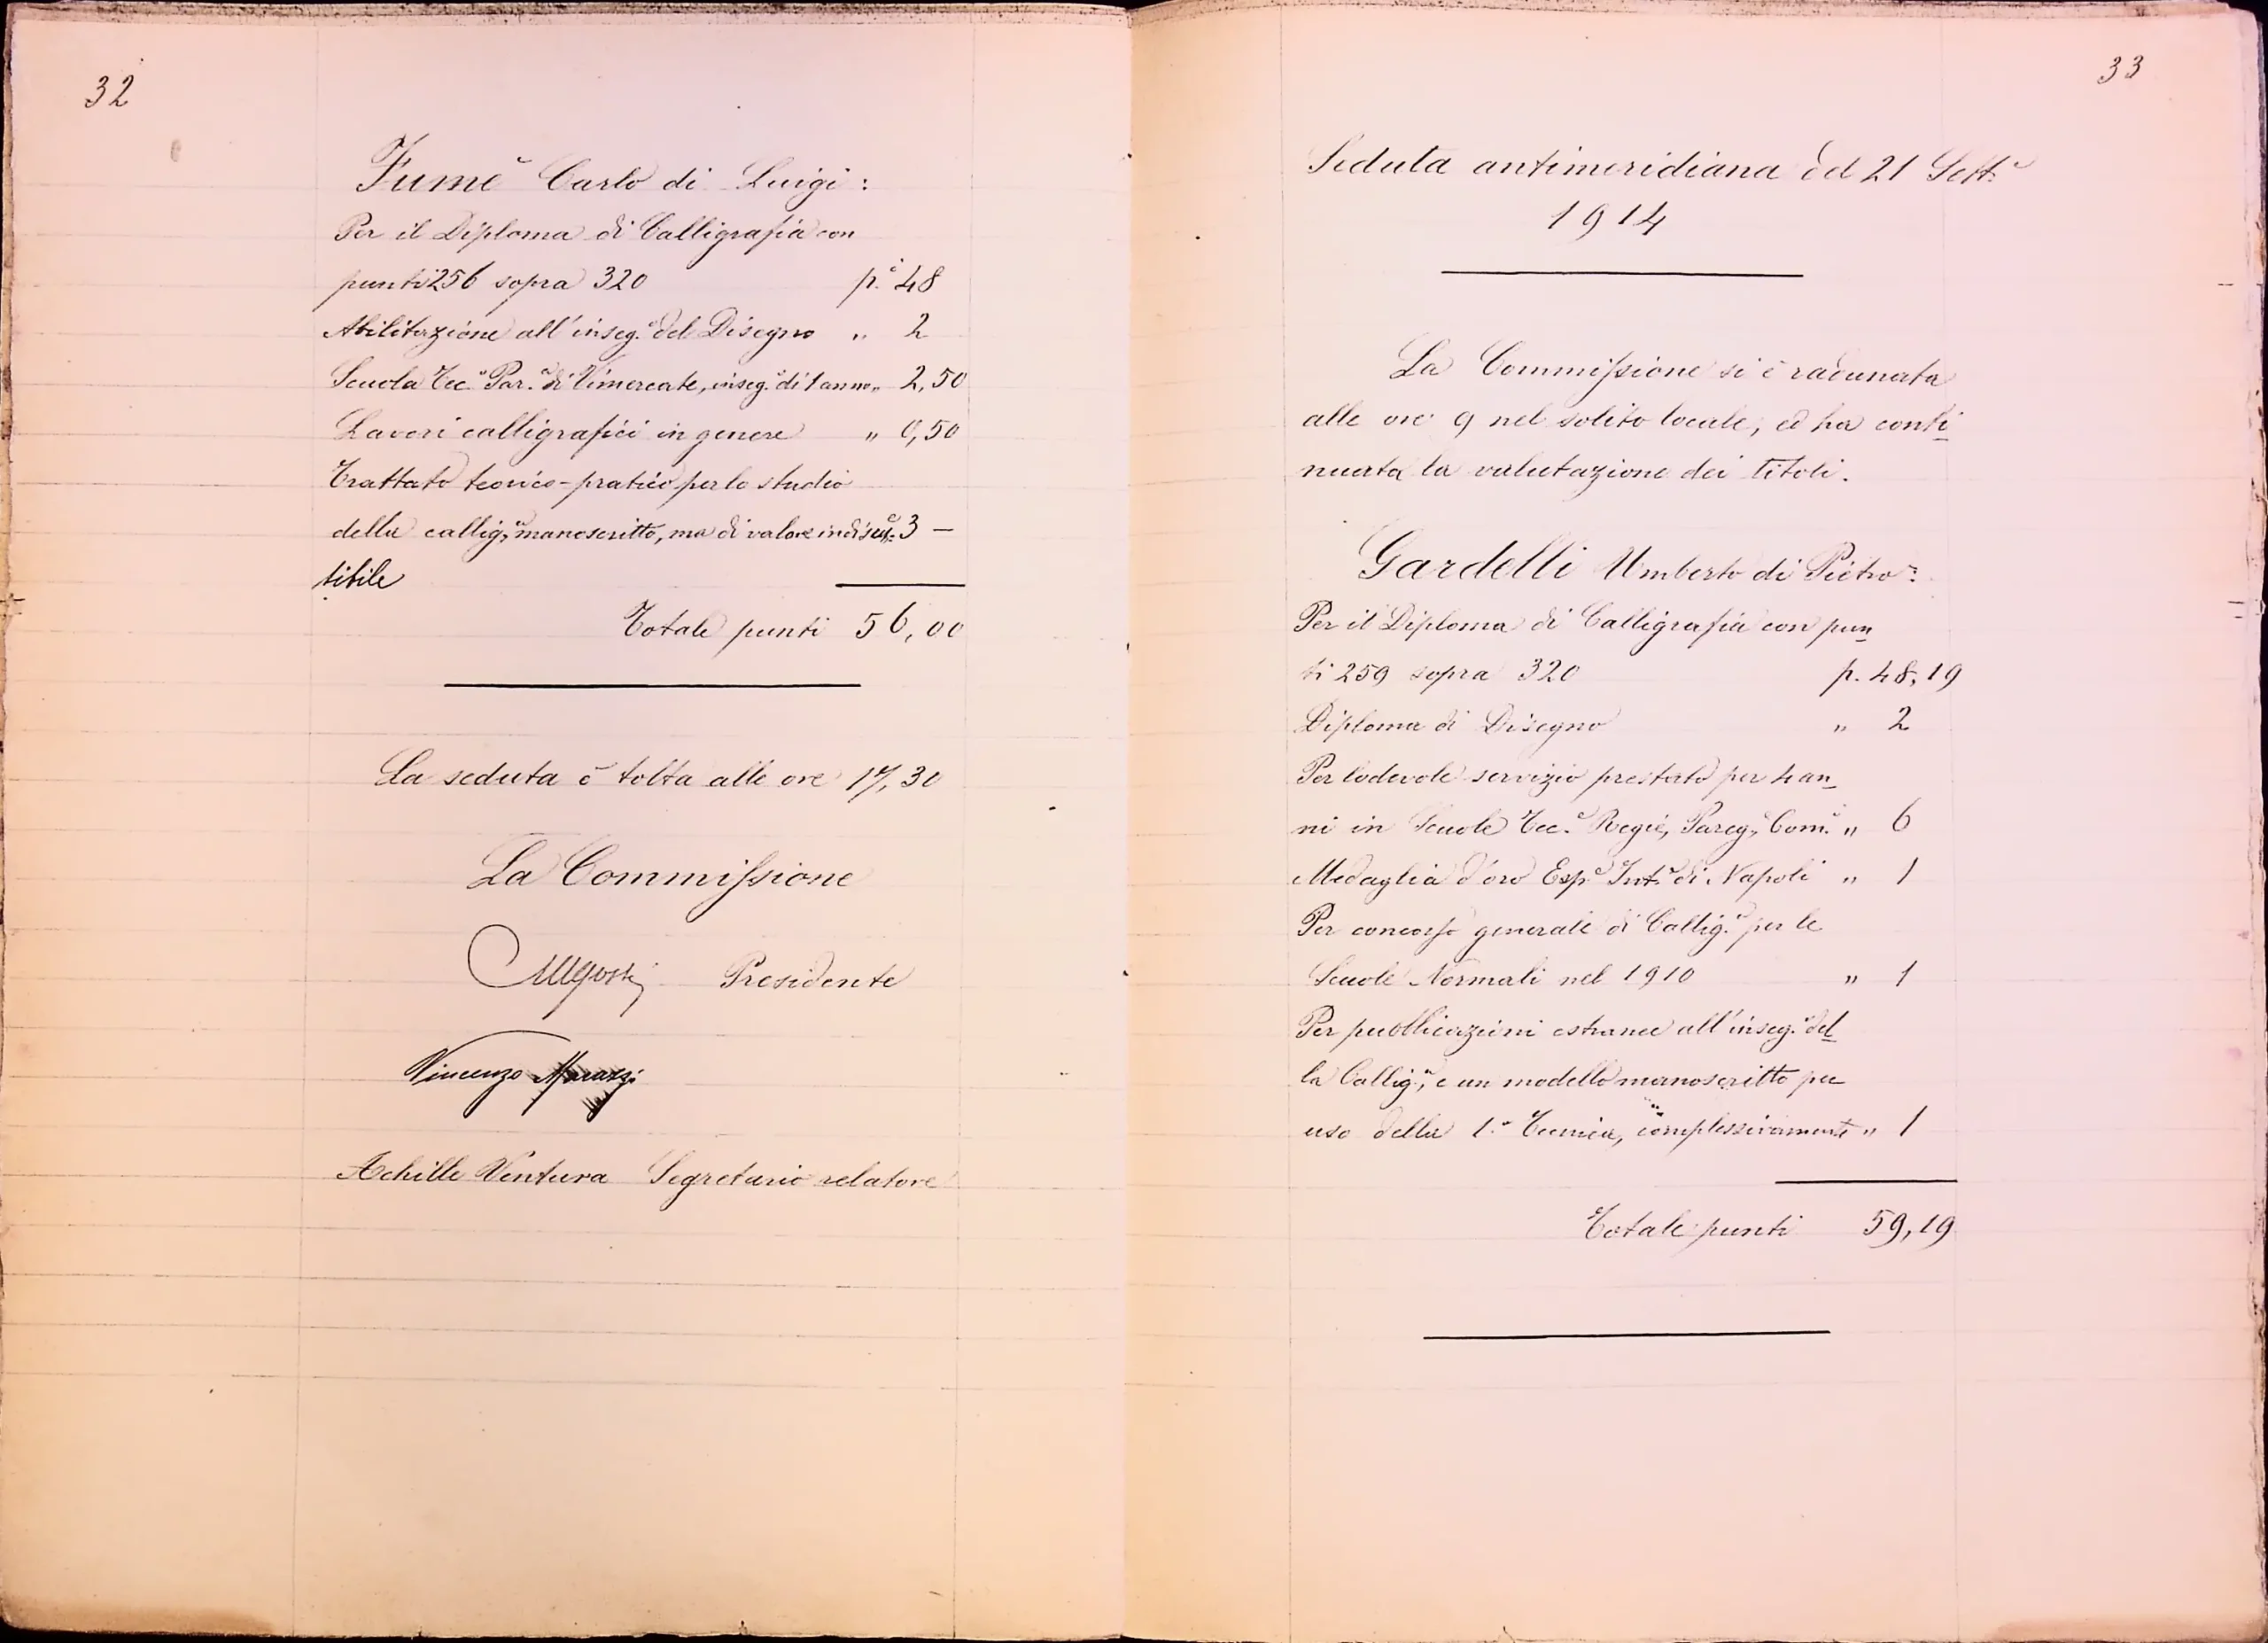 32
Fumè Carlo di Luigi:
Per il Diploma di Calligrafia con
punti 256 sopra 320 p.i 48
Abilitazione all'inseg.o del Disegno „ 2
Scuola Tec.a Par.a di Vimercate, inseg.o di 1 anno „ 2,50
Lavori calligrafici in genere „ 0,50
Trattato teorico-pratico per lo studio
della callig.a, manoscritto, ma di valore indiscu- 3 —
tibile
Totale punti 56,00
La seduta è tolta alle ore 17,30
La Commissione
Presidente
Vincenzo
Achille Ventura Segretario relatore
33
Seduta antimeridiana del 21 Sett.e
1914
La Commissione si è radunata
alle ore 9 nel solito locale, ed ha conti
nuata la valutazione dei titoli.
Gardelli Umberto di Pietro:
Per il Diploma di Calligrafia con pun
ti 259 sopra 320 p. 48,19
Diploma di Disegno „ 2
Per lodevole servizio prestato per 4 an
ni in Scuole Tec.e Regie, Pareg.e, Com.i „ 6
Medaglia d'oro Esp.e Int.e di Napoli „ 1
Per concorso generale di Callig.a per le
Scuole Normali nel 1910 „ 1
Per pubblicazioni estranee all'inseg.o del
la Callig.a, e un modello manoscritto per
uso della 1.a Tecnica, complessivamente „ 1
Totale punti 59,19